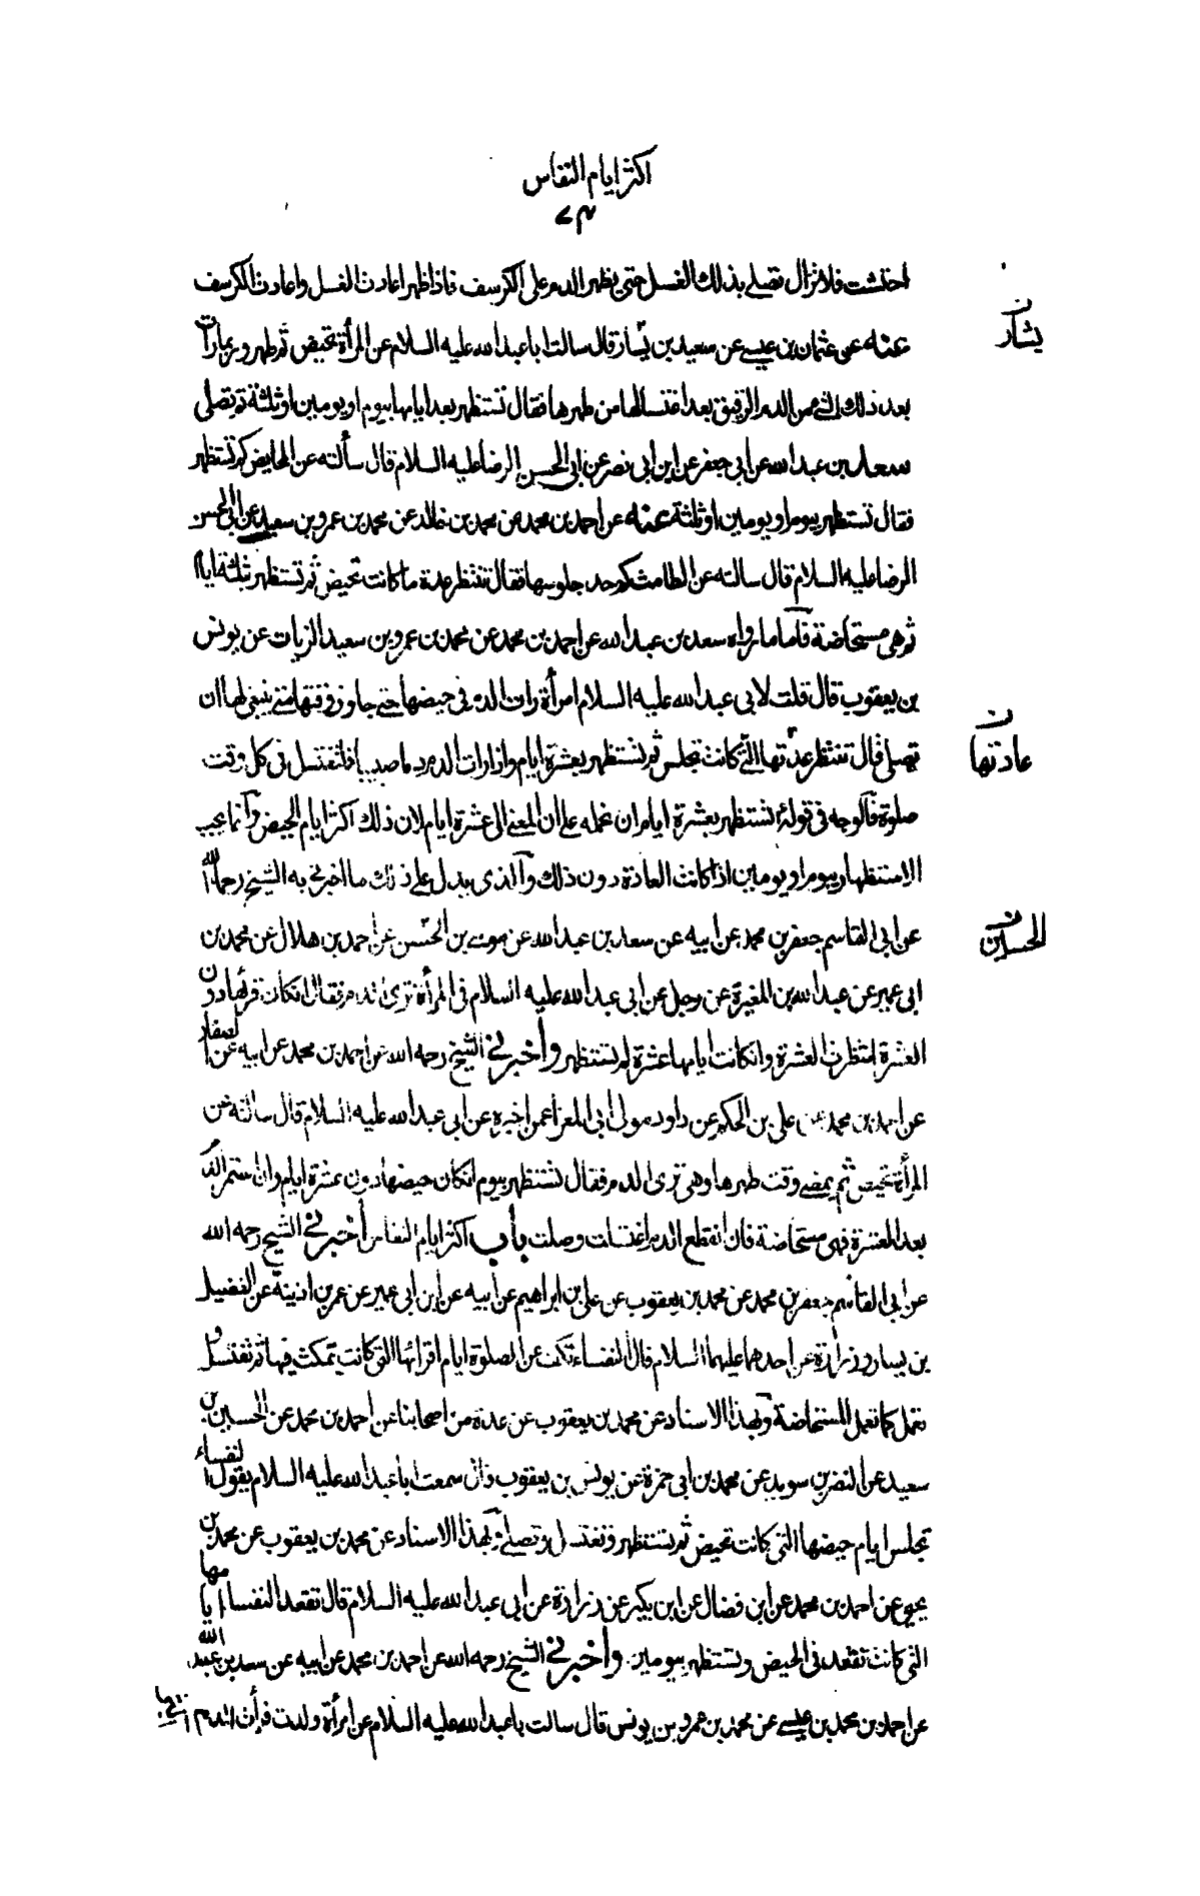 اكثر ايام النفاس
٧٣
احتشت فلا تزال تصلى بذلك الغسل حتى يظهر الدم على الكرسف فاذا ظهر اعادت الغسل واعادت الكرسف
عنه عن عثمان بن عيسى عن سعيد بن يسار قال سالت ابا عبدالله عليه السلام عن المرأة تحيض ثم تطهر وربما رأت
يشار ن
بعد ذلك الشئ من الدم الرقيق بعد اغتسالها من طهرها فقال تستظهر بعد ايامها بيوم او يومين او ثلثة ثم تصلى
سعد بن عبدالله عن ابى جعفر عن ابن ابى نصر عن ابى الحسن الرضا عليه السلام قال سألته عن الحايض كم تستظهر
فقال تستظهر بيوم او يومين او ثلثة عنه عن احمد بن محمد عن محمد بن خالد عن محمد بن عمرو بن سعيد عن ابى الحسن
الرضا عليه السلام قال سالته عن الطامث كم حد جلوسها فقال تنتظر عدة ما كانت تحيض ثم تستظهر بثلثة ايام
ثم هى مستحاضة فاما ما رواه سعد بن عبدالله عن احمد بن محمد عن محمد بن عمرو بن سعيد الزيات عن يونس
بن يعقوب قال قلت لابى عبدالله عليه السلام امرأة رات الدم فى حيضها حتى جاوز وقتها متى ينبغى لها ان
تصلى قال تنتظر عدتها التى كانت تجلس ثم تستظهر بعشرة ايام وان رات الدم دما صبيبا فلتغتسل فى كل وقت
عادتها ن
صلوة فالوجه فى قوله تستظهر بعشرة ايام ان نحمله على ان المعنى الى عشرة ايام لان ذلك اكثر ايام الحيض وانما يجب
الاستظهار بيوم او يومين اذا كانت العادة دون ذلك والذى يدل على ذلك ما اخبرنى به الشيخ رحمه الله
عن ابى القاسم جعفر بن محمد عن ابيه عن سعد بن عبدالله عن موسى بن الحسن عن احمد بن هلال عن محمد بن
الحسين ن
ابى عمير عن عبدالله بن المغيرة عن رجل عن ابى عبدالله عليه السلام فى المرأة ترى الدم فقال ان كان قرئها دون
العشرة انتظرت العشرة وان كانت ايامها عشرة لم تستظهر واخبرنى الشيخ رحمه الله عن احمد بن محمد عن ابيه عن الصفار
عن احمد بن محمد عن على بن الحكم عن داود مولى ابى المغرا عمن اخبره عن ابى عبدالله عليه السلام قال سالته عن
المرأة تحيض ثم يمضى وقت طهرها وهى ترى الدم فقال تستظهر بيوم ان كان حيضها دون عشرة ايام وان استمر الدم
بعد العشرة فهى مستحاضة فان انقطع الدم اغتسلت وصلت باب اكثر ايام النفاس أخبرنى الشيخ رحمه الله
عن ابى القاسم جعفر بن محمد عن محمد بن يعقوب عن على بن ابراهيم عن أبيه عن ابن ابى عمير عن عمر بن اذينة عن الفضيل
بن يسار وزرارة عن احدهما عليهما السلام قال النفساء تكف عن الصلوة ايام اقرائها التى كانت تمكث فيها ثم تغتسل و
تعمل كما تعمل المستحاضة وبهذا الاسناد عن محمد بن يعقوب عن عدة من اصحابنا عن احمد بن محمد عن الحسين بن
سعيد عن النضر بن سويد عن محمد بن ابى حمزة عن يونس بن يعقوب قال سمعت ابا عبدالله عليه السلام يقول النفساء
تجلس ايام حيضها التى كانت تحيض ثم تستظهر وتغتسل وتصلى وبهذا الاسناد عن محمد بن يعقوب عن محمد بن
يحيى عن احمد بن محمد عن ابن فضال عن ابن بكير عن زرارة عن ابى عبدالله عليه السلام قال تقعد النفسا ايامها
التى كانت تقعد فى الحيض وتستظهر بيومين واخبرنى الشيخ رحمه الله عن احمد بن محمد عن ابيه عن سعد بن عبدالله
عن احمد بن محمد بن عيسى عن محمد بن عمرو بن يونس قال سالت ابا عبدالله عليه السلام عن امرأة ولدت فرأت الدم